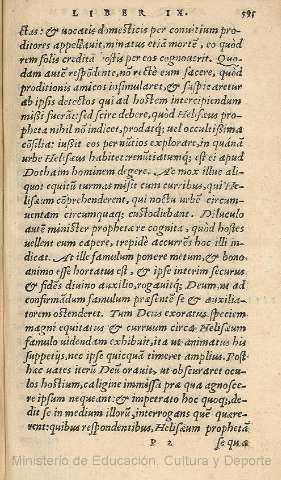 LIBER IX. 595
ctas: & uocatis domesticis per conuitium pro-
ditores appellauit, minatus etiã mortẽ, eo quòd
rem solis creditã hostis per eos cognouerit. Quo-
dam autẽ respondente, nõ rectè eum facere, quòd
proditionis amicos insimularet, & suspicaretur
ab ipsis detectos qui ad hostem intercipiendum
missi fuerãt: sed scire debere, quòd Helisæus pro-
pheta nihil nõ indicet, prodatq; uel occultissima
cõsilia: iußit eos per nũtios explorare, in quanã
urbe Helisæus habitet: renũtiatumq; est ei apud
Dothaim hominem degere. Ac mox ille ali-
quot equitũ turmas misit cum curribus, qui He-
lisæum cõprehenderent, qui noctu urbẽ circum-
uentam circumquaq; custodiebant. Diluculo
autẽ minister prophetæ re cognita, quòd hostes
uellent eum capere, trepidè accurrẽs hoc illi in-
dicat. At ille famulum ponere metum, & bono
animo esse hortatus est, & ipse interim securus
& fidẽs diuino auxilio, rogauitq; Deum, ut ad
confirmãdum famulum præsentẽ se & auxilia-
torem ostenderet. Tum Deus exoratus speciem
magni equitatus & curruum circa Helisæum
famulo uidendam exhibuit, ita ut animatus his
suppetijs, nec ipse quicquã timeret amplius. Post
hæc uates iterũ Deũ orauit, ut obscuraret ocu-
los hostium, caligine immissa præ qua agnosce-
re ipsum nequeant: & impetrato hoc quoq;, de-
dit se in medium illorũ, interrogans quẽ quære-
rent: quibus respondentibus, Helisæum prophetã
P 2 se quæ
Ministerio de Educación, Cultura y Deporte